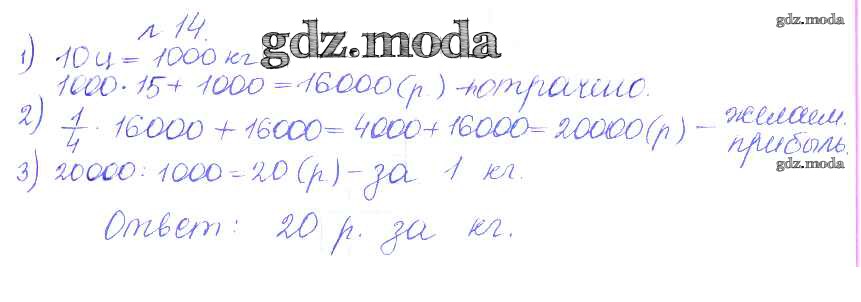 № 14.
gdz.moda
gdz.moda
1) 10 ц = 1000 кг
1000 · 15 + 1000 = 16000 (р.) - потрачено.
2) 1/4 · 16000 + 16000 = 4000 + 16000 = 20000 (р) - желаем. прибыль.
gdz.moda
3) 20000 : 1000 = 20 (р) - за 1 кг.
Ответ: 20 р. за кг.